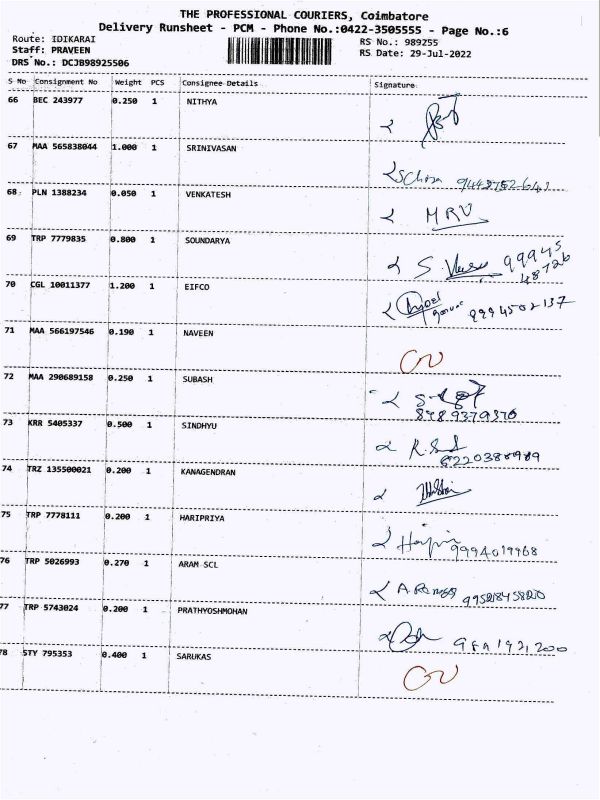 THE PROFESSIONAL COURIERS, Coimbatore
Delivery Runsheet - PCM - Phone No.:0422-3505555 - Page No.:6
Route: IDIKARAI RS No.: 989255
Staff: PRAVEEN RS Date: 29-Jul-2022
DRS No.: DCJB98925506
S No Consignment No Weight PCS Consignee Details Signature
66 BEC 243977 0.250 1 NITHYA
67 MAA 565838044 1.000 1 SRINIVASAN
68 PLN 1388234 0.050 1 VENKATESH
MRV
69 TRP 7779835 0.800 1 SOUNDARYA
S. 99945
48726
70 CGL 10011377 1.200 1 EIFCO
9994502137
71 MAA 566197546 0.190 1 NAVEEN
72 MAA 290689158 0.250 1 SUBASH
8489379376
73 KRR 5405337 0.500 1 SINDHYU
74 TRZ 135500021 0.200 1 KANAGENDRAN
75 TRP 7778111 0.200 1 HARIPRIYA
9994019968
76 TRP 5026993 0.270 1 ARAM SCL
77 TRP 5743024 0.200 1 PRATHYOSHMOHAN
78 STY 795353 0.400 1 SARUKAS